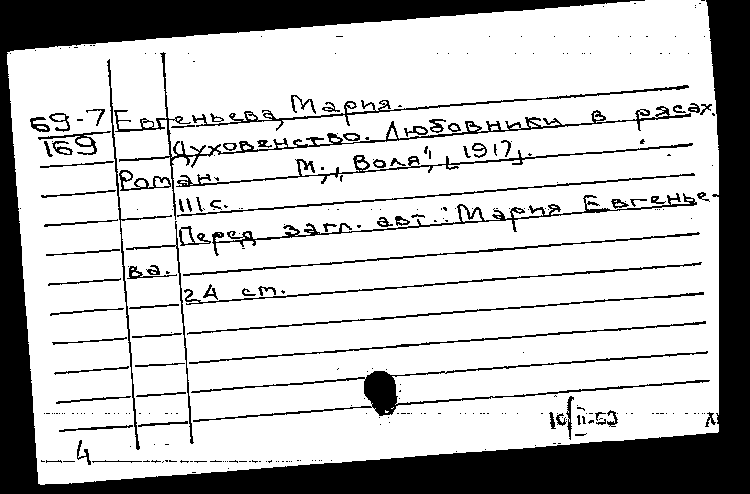 69-7 Евгеньева, Мария.
169 Духовенство. Любовники в рясах.
Роман. М., „Воля", [1917].
111 с.
Перед загл. авт.: Мария Евгенье-
ва.
24 см.
10/II-69
4